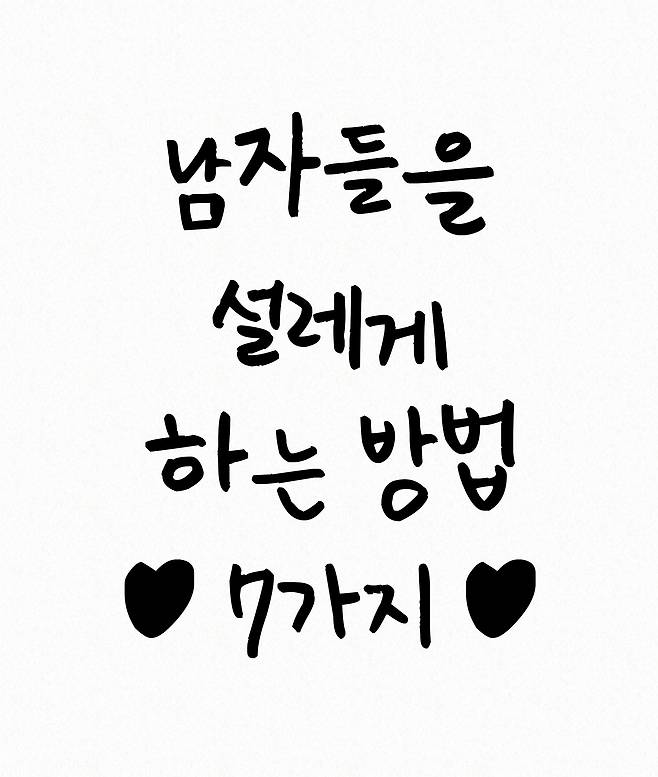 남자들을
설레게
하는 방법
♥ 7가지 ♥